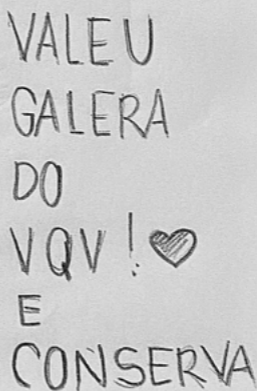 VALEU
GALERA
DO
VQV! ♥
E
CONSERVA